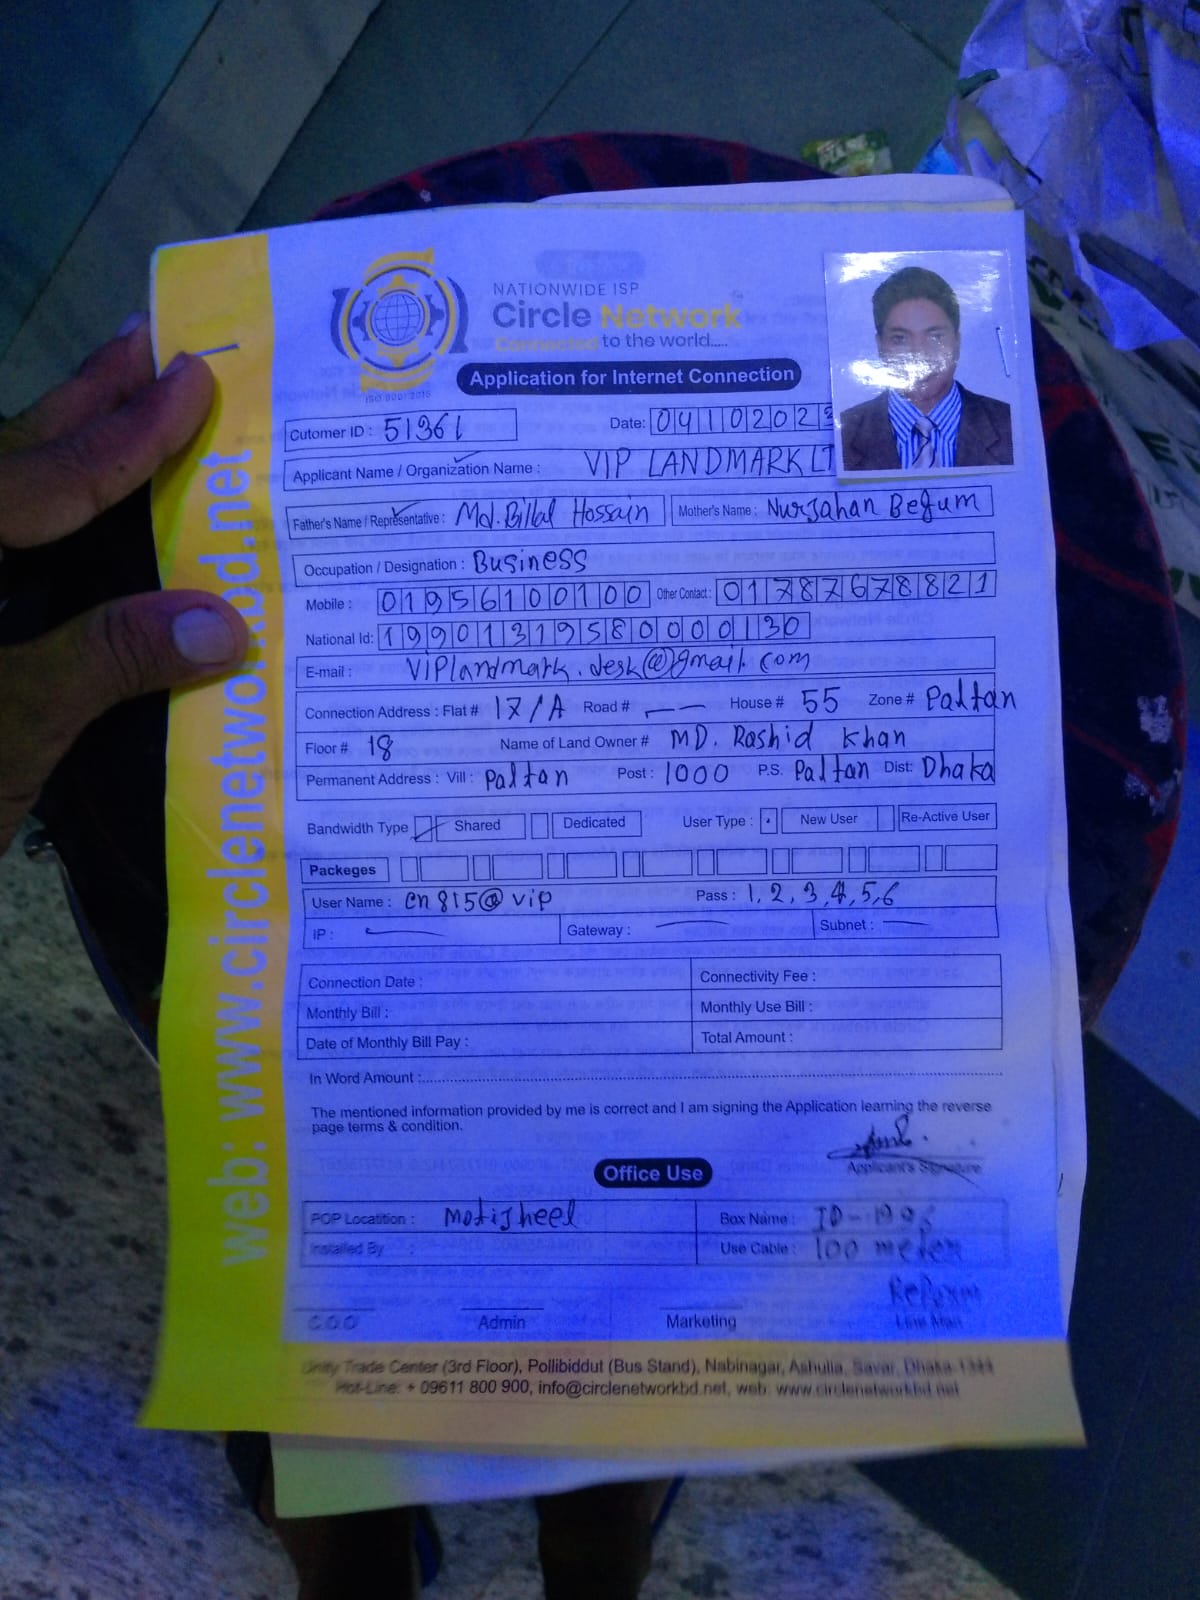 NATIONWIDE ISP
Circle Network
Connected to the world.....
ISO 9001:2015
Application for Internet Connection
Cutomer ID : 51361
Date: 04102023
Applicant Name / Organization Name : VIP LANDMARK LT
Father's Name / Representative : Md. Billal Hossain Mother's Name : Nurjahan Begum
Occupation / Designation : Business
Mobile : 01956100100 Other Contact : 01787678821
National Id: 19901319580000130
E-mail : Viplandmark.desk@gmail.com
Connection Address : Flat # 17/A Road # — House # 55 Zone # Paltan
Floor # 18 Name of Land Owner # MD. Rashid Khan
Permanent Address : Vill : Paltan Post : 1000 P.S. Paltan Dist: Dhaka
Bandwidth Type Shared Dedicated User Type : New User Re-Active User
Packeges
User Name : cn815@vip Pass : 1,2,3,4,5,6
IP : — Gateway : — Subnet : —
Connection Date : Connectivity Fee :
Monthly Bill : Monthly Use Bill :
Date of Monthly Bill Pay : Total Amount :
In Word Amount :
The mentioned information provided by me is correct and I am signing the Application learning the reverse
page terms & condition.
Applicant's Signature
Office Use
POP Locatition : Motijheel Box Name :
Installed By : Use Cable : 100 meter
C.O.O Admin Marketing Line Man
Unity Trade Center (3rd Floor), Pollibiddut (Bus Stand), Nabinagar, Ashulia, Savar, Dhaka-1344
Hot-Line: + 09611 800 900, info@circlenetworkbd.net, web: www.circlenetworkbd.net
web: www.circlenetworkbd.net